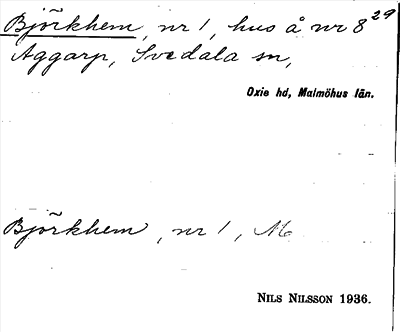 Björkhem, nr 1, hus å nr 8²⁹
Aggarp, Svedala sn,
Oxie hd, Malmöhus län.
Björkhem, nr 1, M
NILS NILSSON 1936.